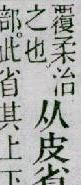 覆柔治
之也
从皮省
部。此省其上下